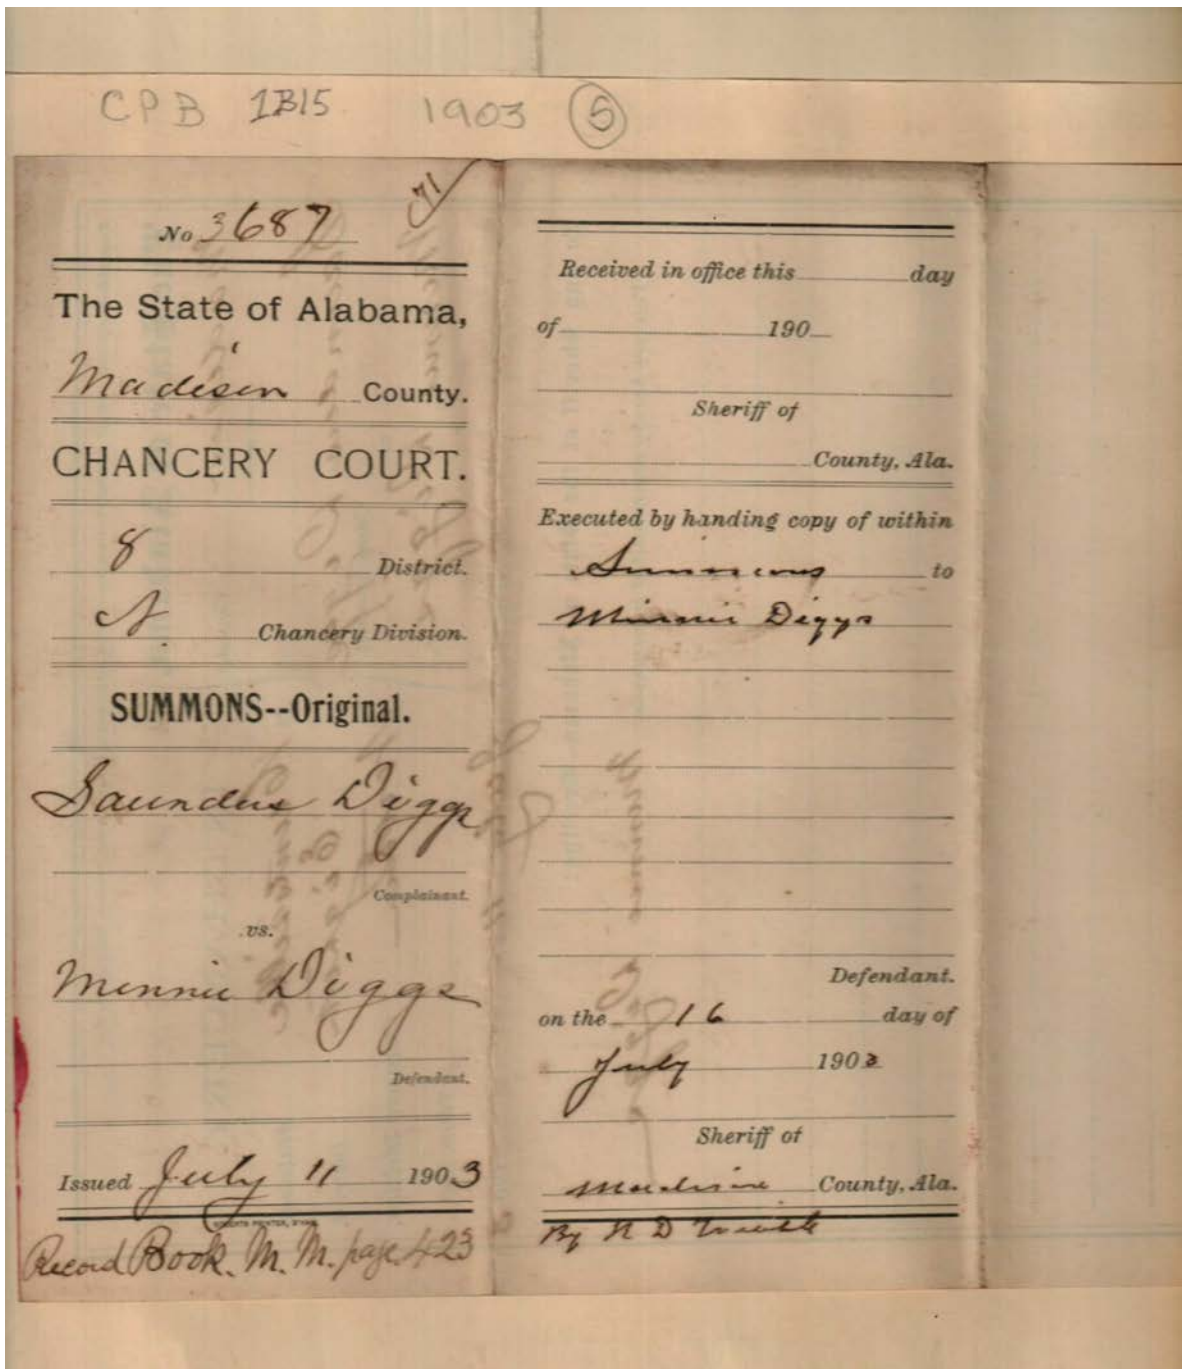 CPB 1B15 1903 5
71
No 3687
The State of Alabama,
Madison County.
CHANCERY COURT.
8 District.
N. Chancery Division.
SUMMONS--Original.
Saunders Diggs
Complainant.
vs.
Minnie Diggs
Defendant.
Issued July 11 1903
Record Book. M. M. page 423
Received in office this day
of 190
Sheriff of
County, Ala.
Executed by handing copy of within
Summons to
Minnie Diggs
Defendant.
on the 16 day of
July 1903
Sheriff of
Madison County, Ala.
By D